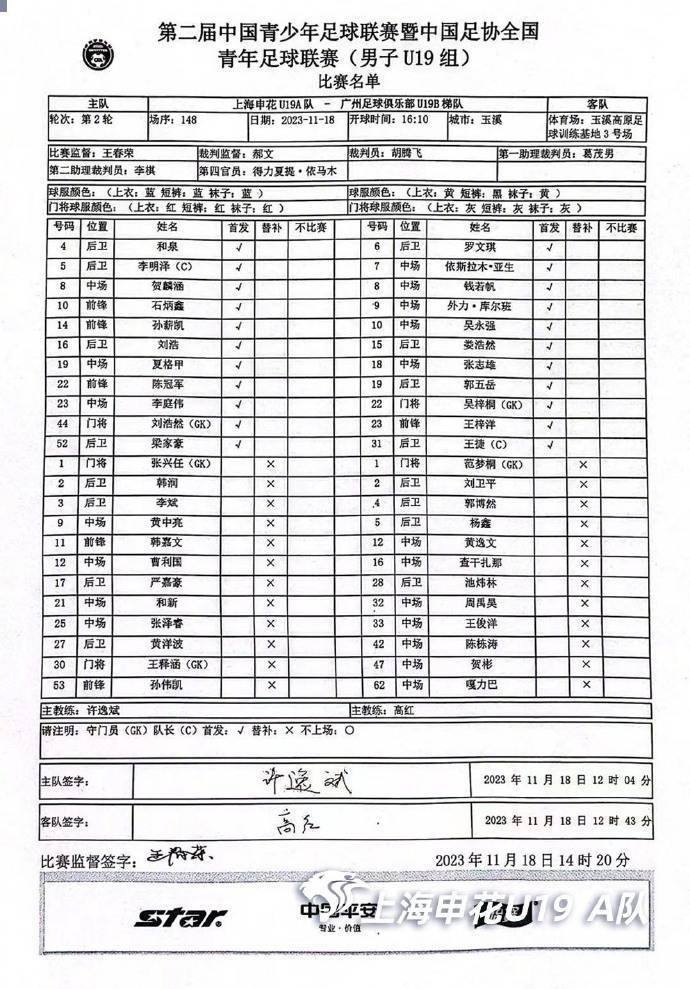 第二届中国青少年足球联赛暨中国足协全国
青年足球联赛（男子 U19 组）
比赛名单
主队 上海申花 U19A 队 - 广州足球俱乐部 U19B 梯队 客队
轮次: 第 2 轮 场序: 148 日期: 2023-11-18 开球时间: 16:10 城市: 玉溪 体育场: 玉溪高原足球训练基地 3 号场
比赛监督: 王春荣 裁判监督: 郝文 裁判员: 胡腾飞 第一助理裁判员: 葛茂男
第二助理裁判员: 李棋 第四官员: 得力夏提·依马木
球服颜色: （上衣: 蓝 短裤: 蓝 袜子: 蓝 ） 球服颜色: （上衣: 黄 短裤: 黑 袜子: 黄 ）
门将球服颜色: （上衣: 红 短裤: 红 袜子: 红 ） 门将球服颜色: （上衣: 灰 短裤: 灰 袜子: 灰 ）
号码 位置 姓名 首发 替补 不比赛 号码 位置 姓名 首发 替补 不比赛
4 后卫 和泉 √ 6 后卫 罗文琪 √
5 后卫 李明泽（C） √ 7 中场 依斯拉木·亚生 √
8 中场 贺麟涵 √ 8 中场 钱若帆 √
10 前锋 石炳鑫 √ 9 中场 外力·库尔班 √
14 前锋 孙薪凯 √ 10 中场 吴永强 √
16 后卫 刘浩 √ 15 后卫 娄浩然 √
19 中场 夏格甲 √ 18 中场 张志雄 √
22 前锋 陈冠军 √ 19 后卫 郭五岳 √
23 中场 李庭伟 √ 22 门将 吴梓桐（GK） √
44 门将 刘浩然（GK） √ 23 前锋 王梓洋 √
52 后卫 梁家豪 √ 31 后卫 王捷（C） √
1 门将 张兴任（GK） × 1 门将 范梦桐（GK） ×
2 后卫 韩润 × 2 后卫 刘卫平 ×
3 后卫 李斌 × 4 后卫 郭博然 ×
9 中场 黄中亮 × 5 后卫 杨鑫 ×
11 前锋 韩嘉文 × 12 中场 黄逸文 ×
12 中场 曹利国 × 16 中场 查干扎那 ×
17 后卫 严嘉豪 × 28 后卫 池炜林 ×
21 中场 和新 × 32 中场 周禹昊 ×
25 中场 张泽睿 × 33 中场 王俊洋 ×
27 后卫 黄洋波 × 42 中场 陈栋涛 ×
30 门将 王释涵（GK） × 47 中场 贺彬 ×
53 前锋 孙伟凯 × 62 中场 嘎力巴 ×
主教练: 许逸斌 主教练: 高红
请注明: 守门员（GK）队长（C）首发: √ 替补: × 不上场: ○
主队签字: 许逸斌 2023 年 11 月 18 日 12 时 04 分
客队签字: 高红 2023 年 11 月 18 日 12 时 43 分
比赛监督签字: 王春荣 2023 年 11 月 18 日 14 时 20 分
star. 中国平安
专业·价值
上海申花U19 A队